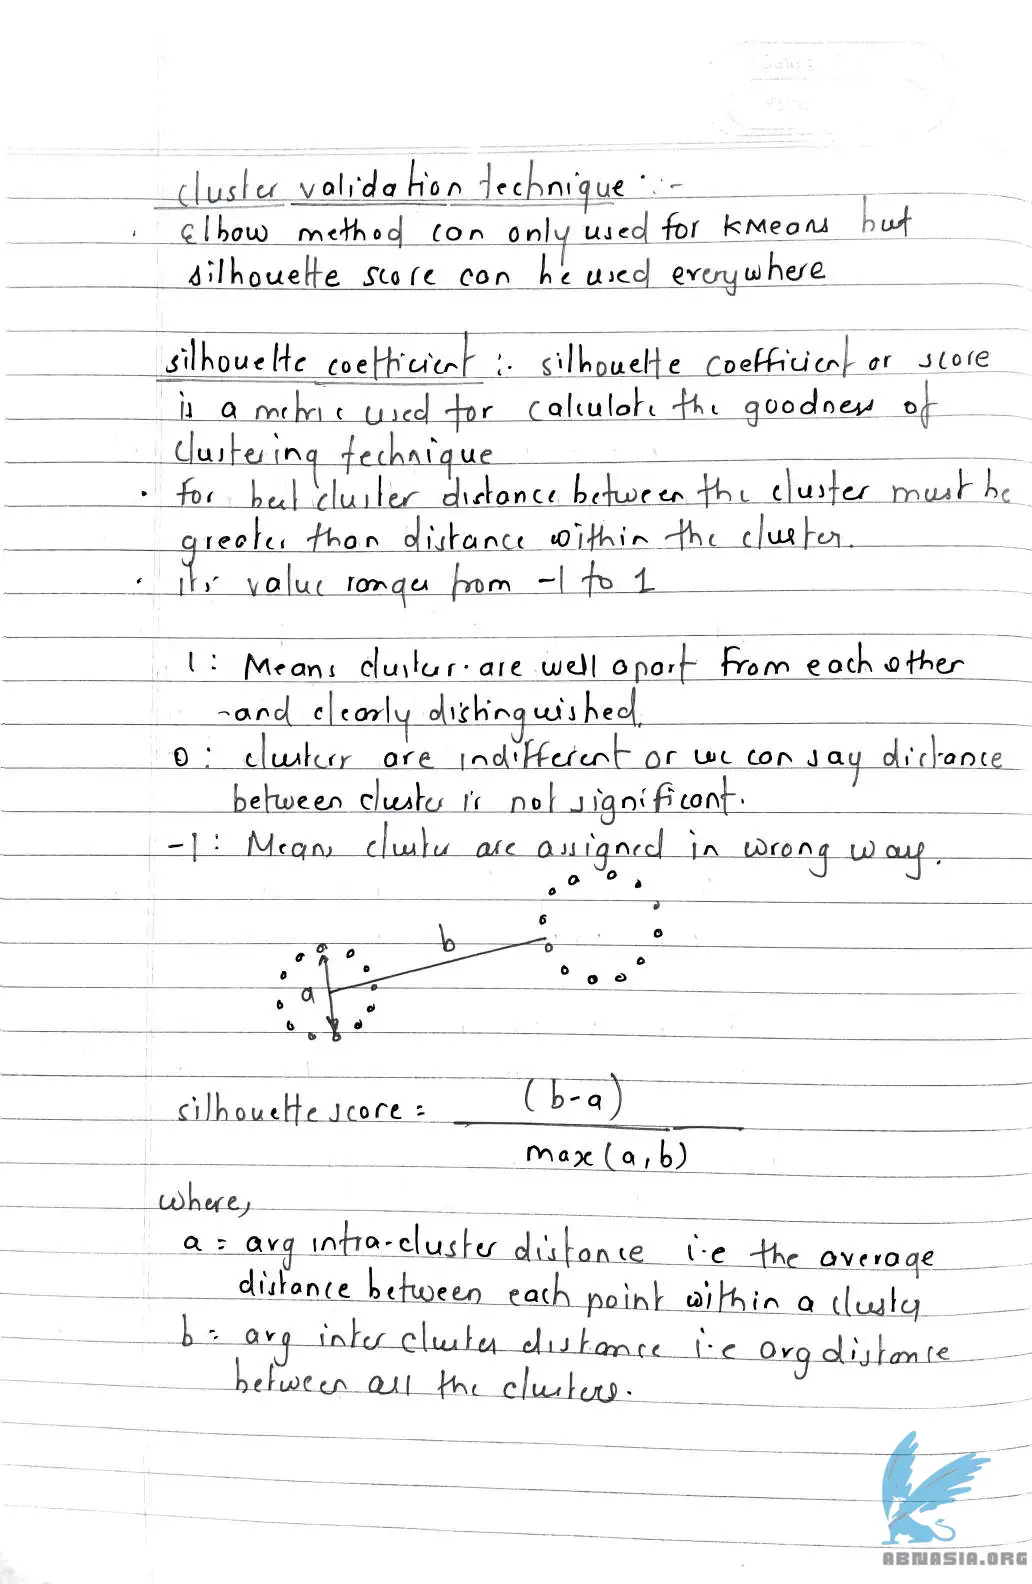 cluster validation technique :-
Elbow method can only used for KMeans but
silhouette score can be used everywhere
silhouette coefficient :. silhouette coefficient or score
is a metric used for calculate the goodness of
clustering technique
. for best cluster distance between the cluster must be
greater than distance within the cluster.
. its value ranges from -1 to 1
1 : Means clusters are well apart from each other
and clearly distinguished.
0 : clusters are indifferent or we can say distance
between cluster is not significant.
-1 : Means cluster are assigned in wrong way.
b
a
silhouette score = (b-a)
max(a,b)
where,
a = avg intra-cluster distance i.e the average
distance between each point within a cluster
b = avg inter cluster distance i.e avg distance
between all the clusters.
ABNASIA.ORG